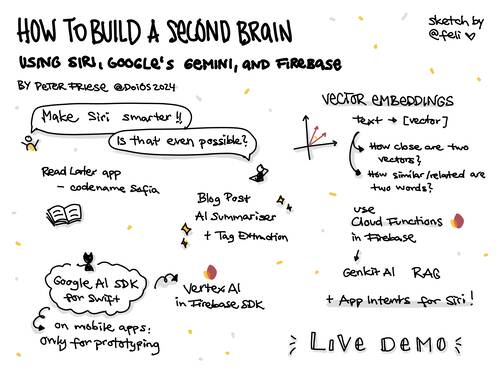 HOW TO BUILD A SECOND BRAIN
USING SIRI, GOOGLE'S GEMINI, AND FIREBASE
BY PETER FRIESE @DoiOS2024
sketch by
@feli
Make Siri smarter!!
Is that even possible?
Read Later app
- codename Sofia
Blog Post
AI Summariser
+ Tag Extraction
Google AI SDK
for Swift
on mobile apps:
only for prototyping
Vertex AI
in Firebase SDK
VECTOR EMBEDDINGS
text → [vector]
How close are two
vectors?
How similar/related are
two words?
use
Cloud Functions
in Firebase
Genkit AI RAG
+ App Intents for Siri!
LIVE DEMO